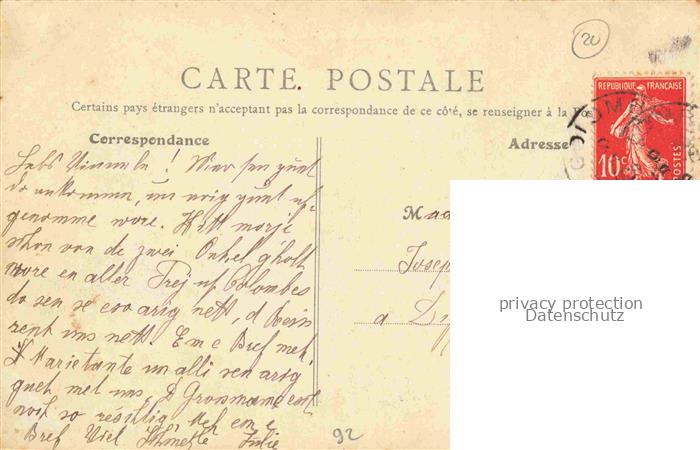 20
CARTE POSTALE
Certains pays étrangers n'acceptant pas la correspondance de ce côté, se renseigner à la
Correspondance
Adresse
REPUBLIQUE FRANÇAISE
10 c
POSTES
COLOM
! Mer sen gunt
do ankommen, un arig gunt uf-
genomme wore. Hitt morje
schon von de zwei Onkel gholt
wore en aller Frej uf Colombes
do sen se eso arig nett, d
rent uns nett. Em e Bref meh.
D Marietante un alli sen arig
guet met uns. D Grosmame est
noch so
Bref Viel Schmetze Julie
92
Ma
Josep
a
privacy protection
Datenschutz